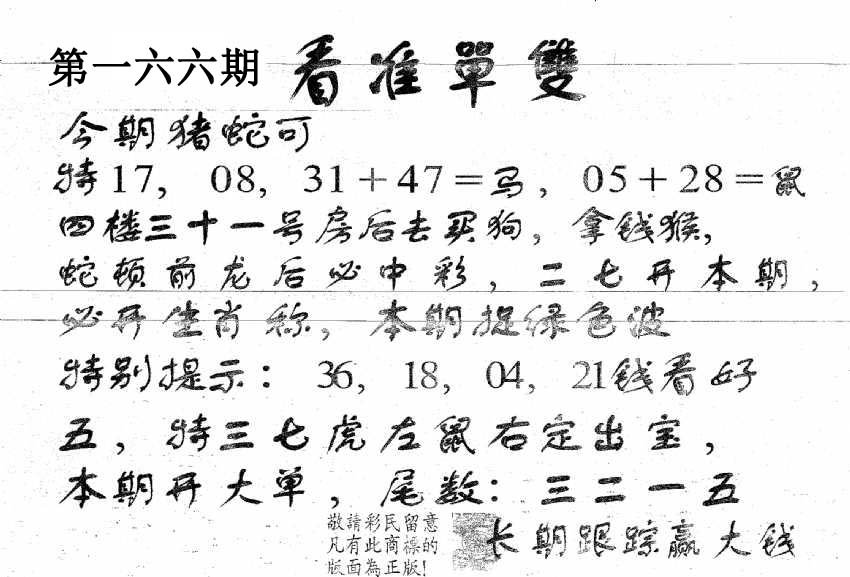 第一六六期 看准單雙
今期猪蛇可
特17, 08, 31+47=马, 05+28=鼠
四楼三十一号房后去买狗, 拿钱猴,
蛇頓前龙后必中彩, 二七开本期,
必开生肖称, 本期捉绿色波
特别提示: 36, 18, 04, 21钱看好
五, 特三七虎左鼠右定出宝,
本期开大单, 尾数: 三二一五
敬請彩民留意
凡有此商標的
版面為正版!
长期跟踪赢大钱